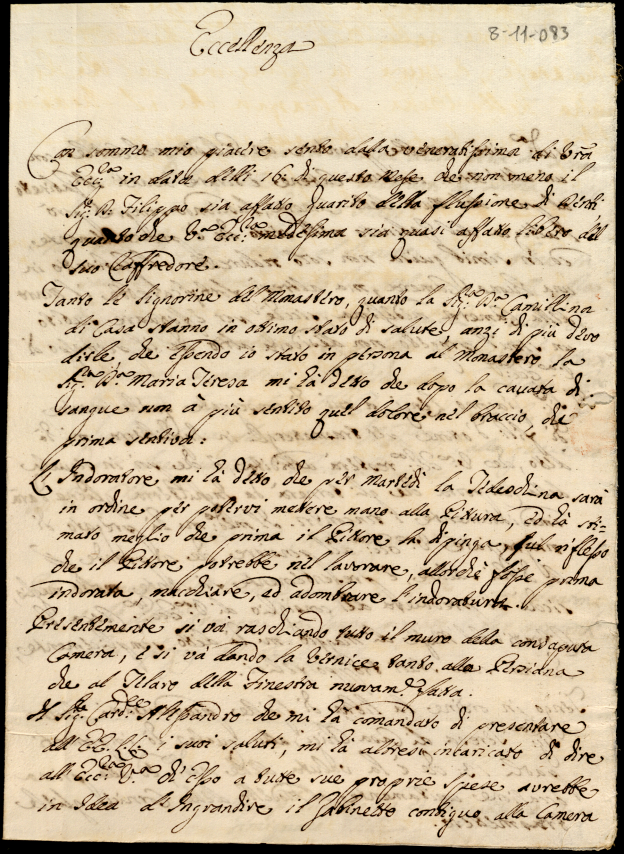 8-11-083
Eccellenza
Con sommo mio piacere sento dalla veneratissima di Vra
Eccza in data delli 16. di questo Mese che non meno il
Sigr. D. Filippo sia affatto guarito della flussione di Denti
quanto che V.a Ecc.za medesima sia quasi affatto libera dal
suo Raffredore.
Tanto le Signorine del Monastero, quanto la Sig.ra D.a Camillina
di Casa stanno in ottimo stato di salute, anzi di più devo
dirle, che essendo io stato in persona al Monastero la
Sig.ra D.a Maria Teresa mi hà detto che dopo la cavata di
sangue non à più sentito quel dolore nel braccio, che
prima sentiva:
L'Indoratore mi hà detto che per Martedì la Tedeschina sarà
in ordine per potervi mettere mano alla Pittura, ed hà sti=
mato meglio che prima il Pittore la dipinga, sul riflesso
che il Pittore potrebbe nel lavorare, allorchè fosse prima
indorata, macchiare, ed adombrare l'indoratura.
Presentemente si và raschiando tutto il muro della consaputa
Camera, e si và dando la vernice tanto alla Persiana
che al Telaro della Finestra nuovam.e fatta.
Il Sig.r Card.le Alessandro che mi hà comandato di presentare
all' EE. i suoi saluti, mi hà altresì incaricato di dire
all' Ecc.za V.a ch'Esso a tutte sue proprie spese avrebbe
in Idea d'Ingrandire il Gabinetto contiguo alla Camera